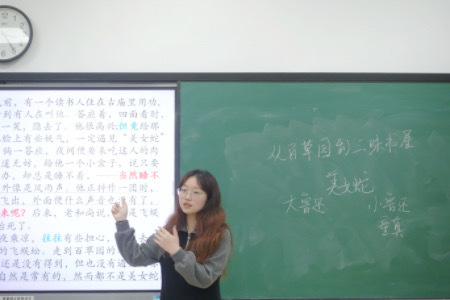 前，有一个读书人住在古庙里用功，
到有人在叫他。答应着，四面看时，
一笑，隐去了。他很高兴；但竟给那
脸上有些妖气，一定遇见“美女蛇”
倘一答应，夜间便要来吃这人的肉
道无妨，给他一个小盒子，说只要
办，却总是睡不着，——当然睡不
外像是风雨声。他正抖作一团时，
飞出，外面便什么声音也
来呢？后来，老和尚说，是飞蜈
治死了。
夜乘凉，往往有些担心，去
的飞蜈蚣。走到百草园的
还是没有得到，但也没有遇
自然是常有的，然而都不是美女蛇
从百草园到三味书屋
美女蛇
大鲁迅 小鲁迅
童真